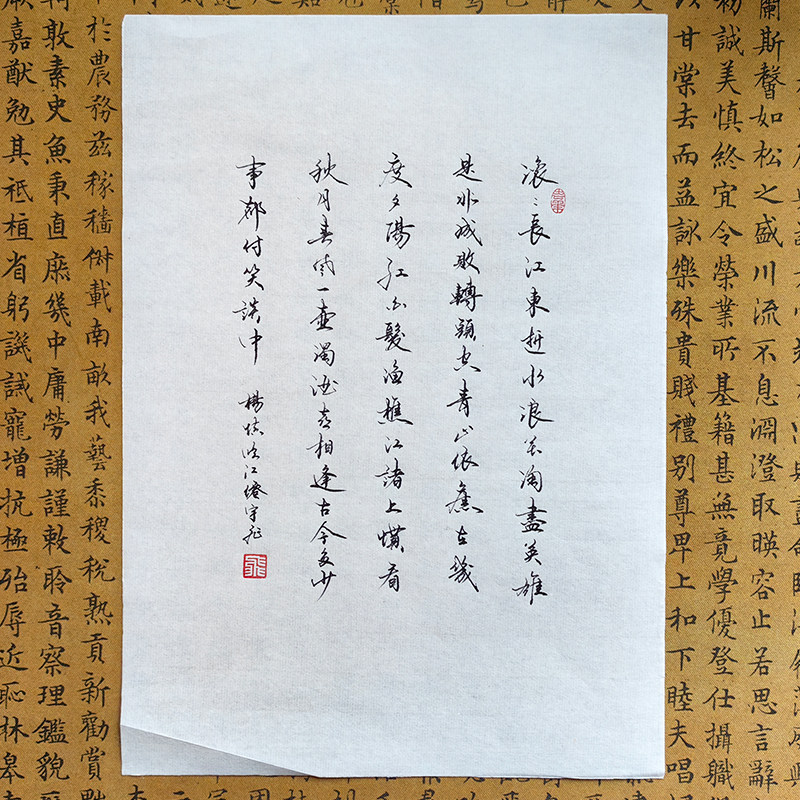 蘭斯馨如松之盛川流不息淵澄取暎容止若思言辭
初誠美慎終宜令榮業所基籍甚無竟學優登仕攝職
以甘棠去而益詠樂殊貴賤禮別尊卑上和下睦夫唱
滚〻長江東逝水浪花淘盡英雄
是非成敗轉頭空青山依舊在幾
度夕陽紅白髮漁樵江渚上慣看
秋月春風一壺濁酒喜相逢古今多少
事都付笑談中 楊慎臨江仙宇飛
於農務茲稼穡俶載南畝我藝黍稷稅熟貢新勸賞
敦素史魚秉直庶幾中庸勞謙謹敕聆音察理鑑貌
嘉猷勉其祗植省躬譏誡寵增抗極殆辱近恥林皋